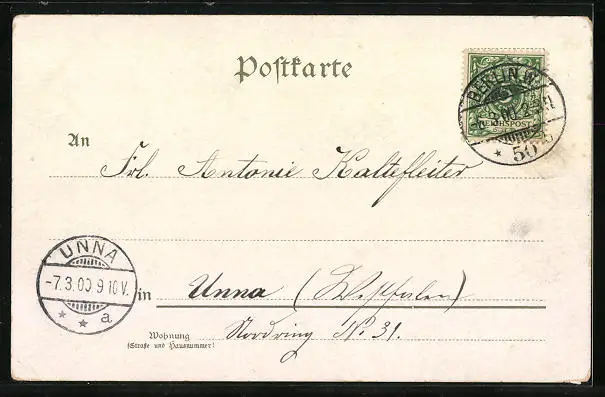 Postkarte
BERLIN.W.
REICHSPOST
50
An
Frl. Antonie Kaltefleiter
UNNA
-7.3.00.9 10V.
a
in Unna (Westfalen)
Wohnung
(Straße und Hausnummer)
Nordring No 31.